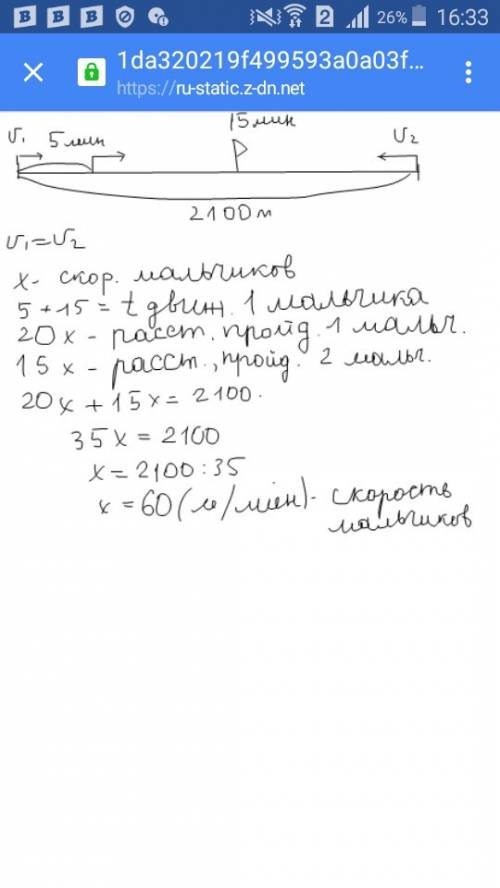 B B B 2 26% 16:33
1da320219f499593a0a03f...
https://ru-static.z-dn.net
15 мин
v₁ 5 мин v₂
2100 м
v₁=v₂
x- скор. мальчиков
5+15= t движ. 1 мальчика
20x - расст. пройд. 1 мальч.
15x - расст., пройд. 2 мальч.
20x + 15x = 2100.
35x = 2100
x = 2100:35
x = 60 (м/мin)- скорость
мальчиков